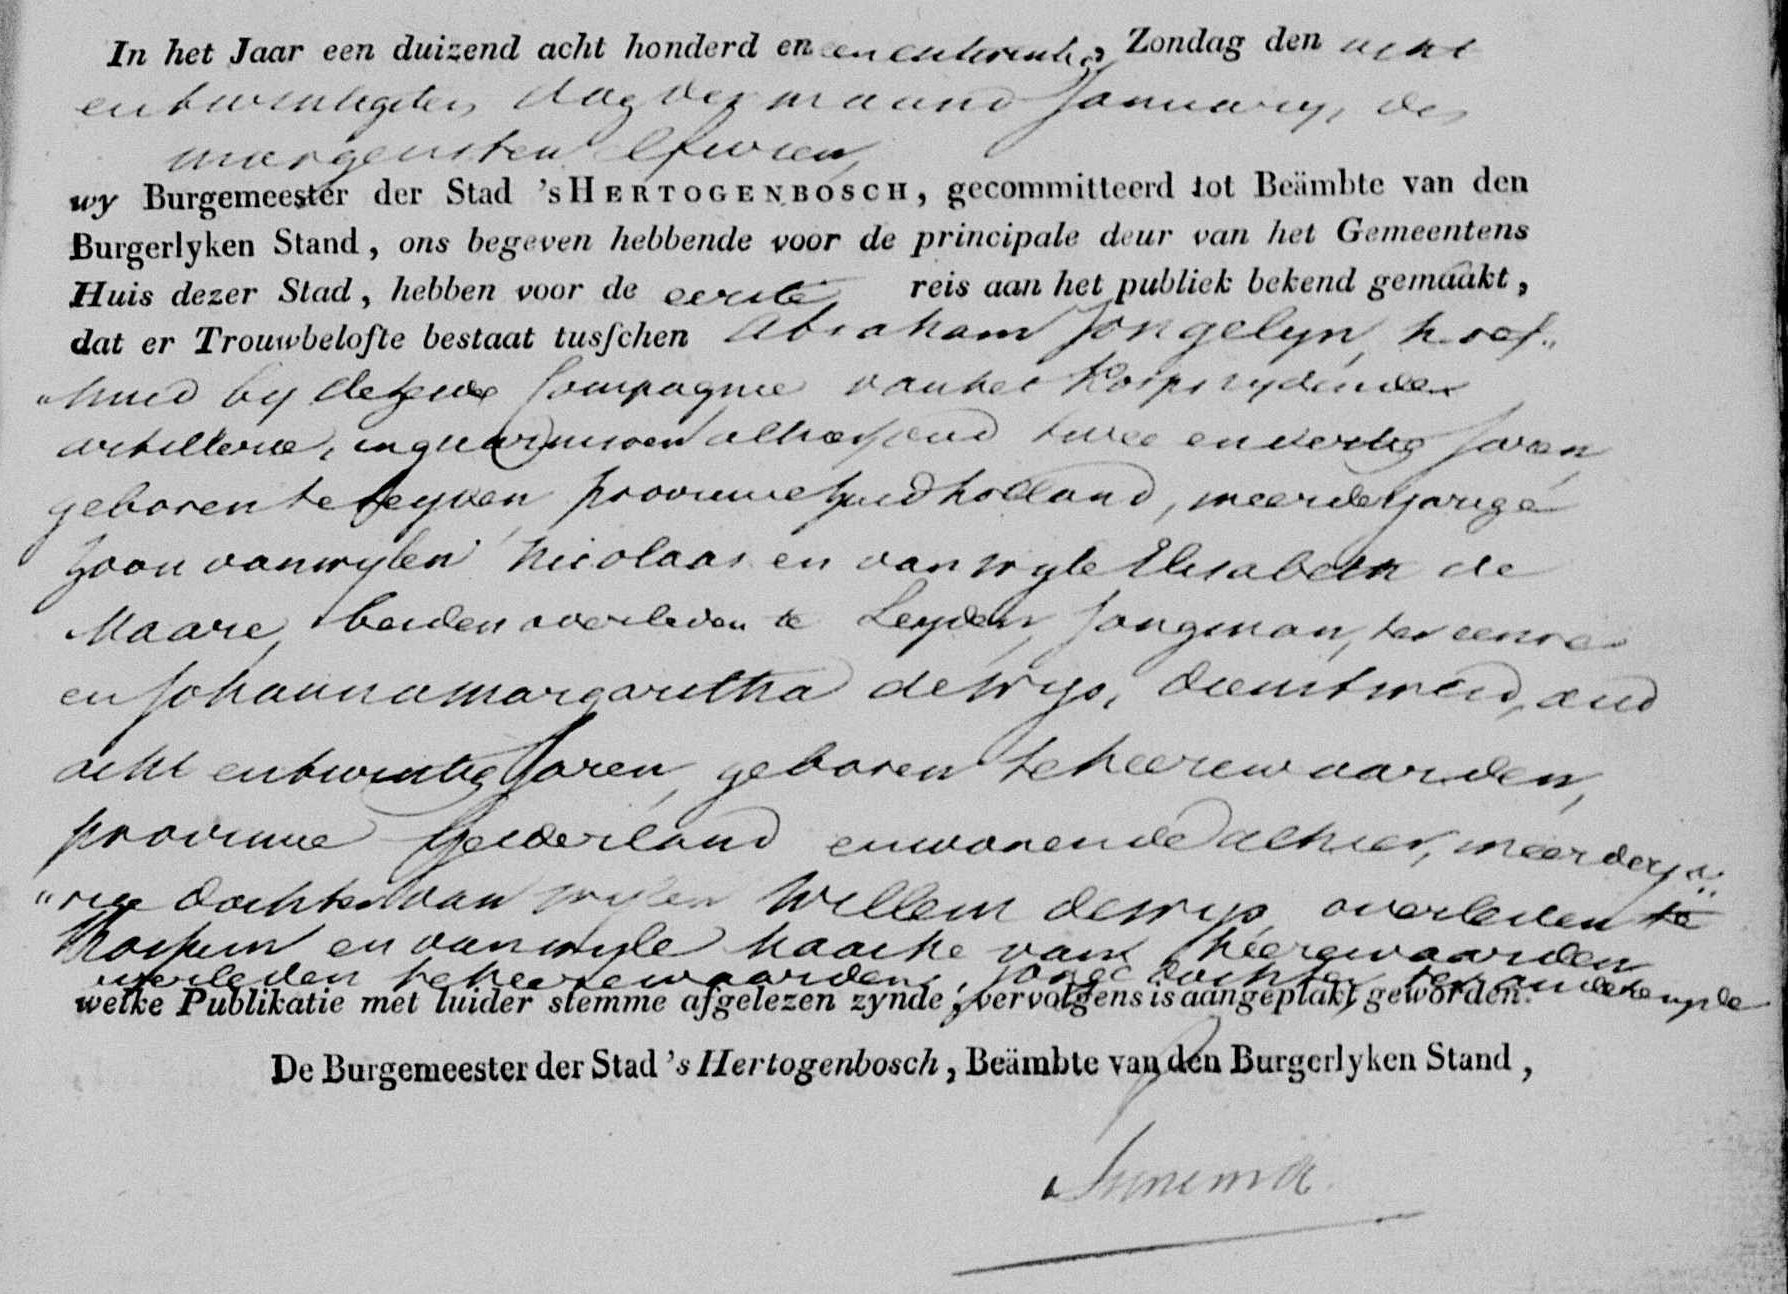 In het Jaar een duizend acht honderd en een en twintig Zondag den acht
entwintigsten dag der maand January, des
morgens ten elf uren,
wy Burgemeester der Stad 'sHERTOGENBOSCH, gecommitteerd tot Beämbte van den
Burgerlyken Stand, ons begeven hebbende voor de principale deur van het Gemeentens
Huis dezer Stad, hebben voor de eerste reis aan het publiek bekend gemaakt,
dat er Trouwbelofte bestaat tusschen Abraham Jongelyn, hoef„
„smid by de Compagnie van het Korps rydende
artillerie, in guarnisoen alhier, oud twee en dertig Jaren,
geboren te Leyden, provincie Zuidholland, meerderjarige
Zoon van wylen Nicolaas en van wyle Elisabeth de
Maare, beiden overleden te Leyden, Jongman, ter eenre
en Johanna Margaretha de Wys, dienstmeid, oud
acht entwintig Jaren, geboren te heerewaarden,
provincie Gelderland en wonende alhier, meerderja„
„rige dochter van wylen Willem de Wys, overleden te
en van wyle van heerewaarden
overleden te heerewaarden, jonge dochter, ter andere zyde
welke Publikatie met luider stemme afgelezen zynde, vervolgens is aangeplakt geworden.
De Burgemeester der Stad 's Hertogenbosch, Beämbte van den Burgerlyken Stand,